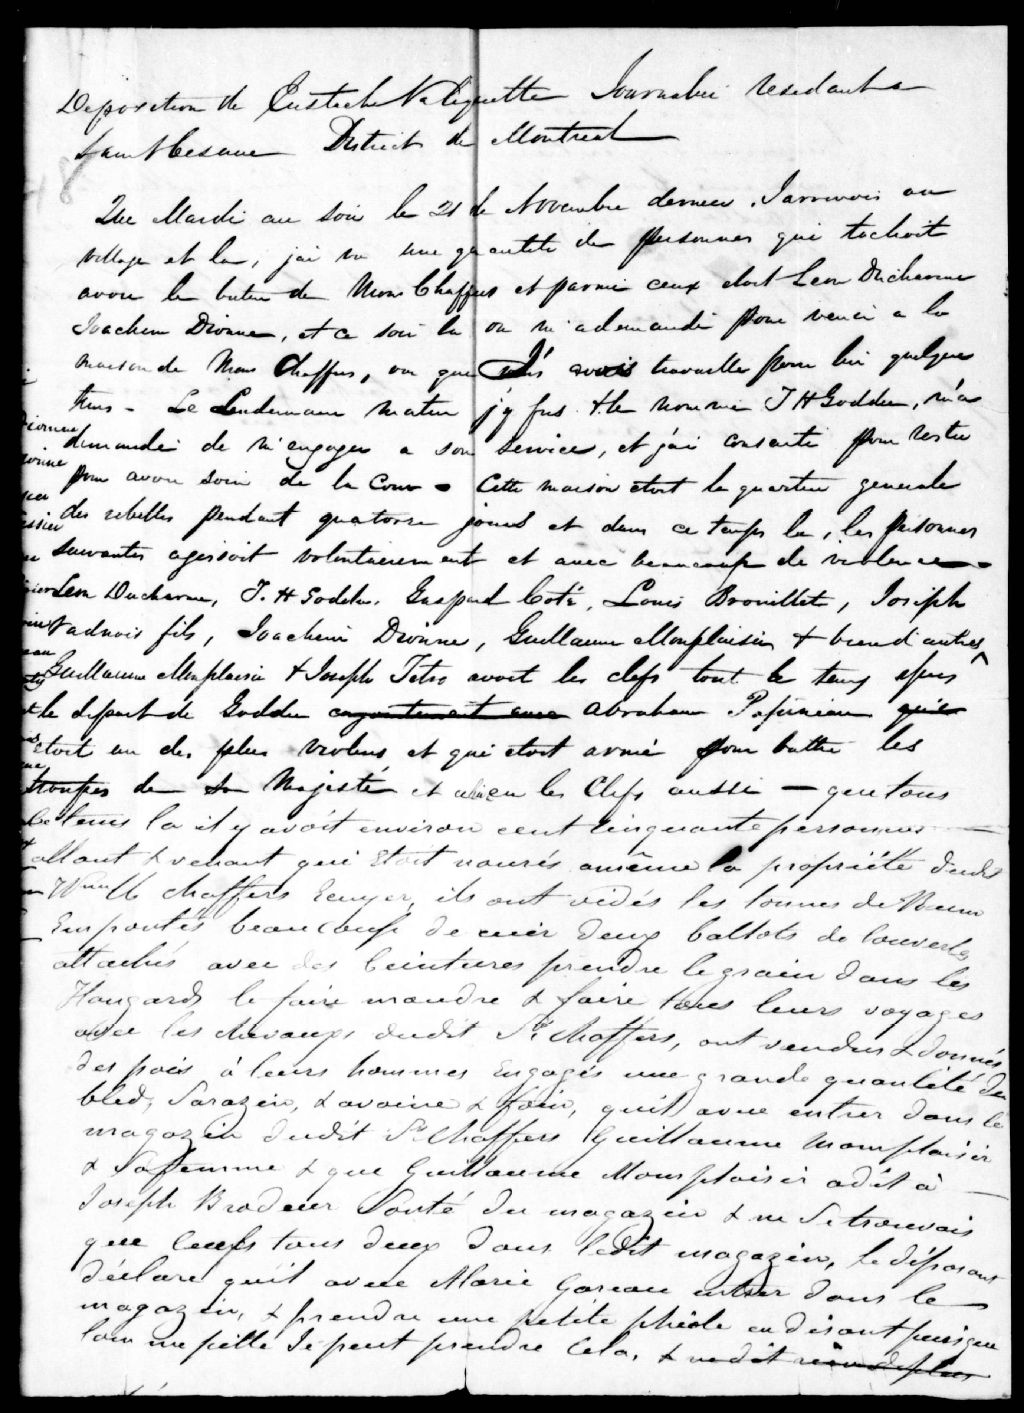 Deposition de Eustache Valiquette Journalier residant a
Saint Cesaire District de Montreal
Que Mardi au soir le 21 de Novembre dernier, J'arrivois au
village et la, j'ai vu une quantité de personnes qui tachoit
avoir le butin de Mons Chaffers et parmi ceux etoit Leon Ducharme
Joachim Dionne, et ce soir la on m'a demandé pour venir a la
maison de Mons Chaffers, vu que J'avais travaille pour lui quelques
tems - Le Lendemain matin j'y fus & le nommé J H Goddu, m'a
demandé de m'engager a son service, et j'ai consenti pour rester
pour avoir soin de la Cour - Cette maison etoit le quartier generale
des rebelles pendant quatorze jours et dans ce temps la, les personnes
suivantes agissoit volontairement et avec beaucoup de violence -
Leon Ducharme, J. H Goddu, Gaspard Coté, Louis Brouillet, Joseph
fils, Joachim Dionne, Guillaume Monplaisir & bien d'autres
Guillaume Monplaisir & Joseph Tetro avoit les clefs tout le tems apres
le depart de Goddu conjointement avec Abraham Papineau qui
etoit un des plus violens et qui etoit armé pour battre les
troupes de Sa Majesté et a bien eu les Clefs aussi - que tous
le tems la il y avoit environ cent cinquante personnes
allant & venant qui etoit nourés a même la propriété dudit
Chaffers Ecuyer, ils ont vidés les tonnes de Rum
Emportés beaucoup de cuir deux ballots de couvertes
attachés avec des Ceintures prendre le grain dans les
Hangards le faire moudre & faire tous leurs voyages
avec les chevaux dudit Sr. Chaffers, ont vendus & donnés
des pois à leurs hommes Engagés une grande quantité de
bled, Sarazin, & avoine & foin, qu'il a vue entrer dans le
magazin dudit Sr Chaffers Guillaume Momplaisir
& Sa femme & que Guillaume Momplaisir a dit à
Joseph Brodeur Sorté du magazin & ne Setrouvois
que Ceux tous deux dans ledit magazin, le déposant
déclare qu'il a vue Marie Gareau entrer dans le
magazin, & prendre une petite phiole en disant puisque
l'on me pille Je peut prendre Cela, & ne dit rien de plus